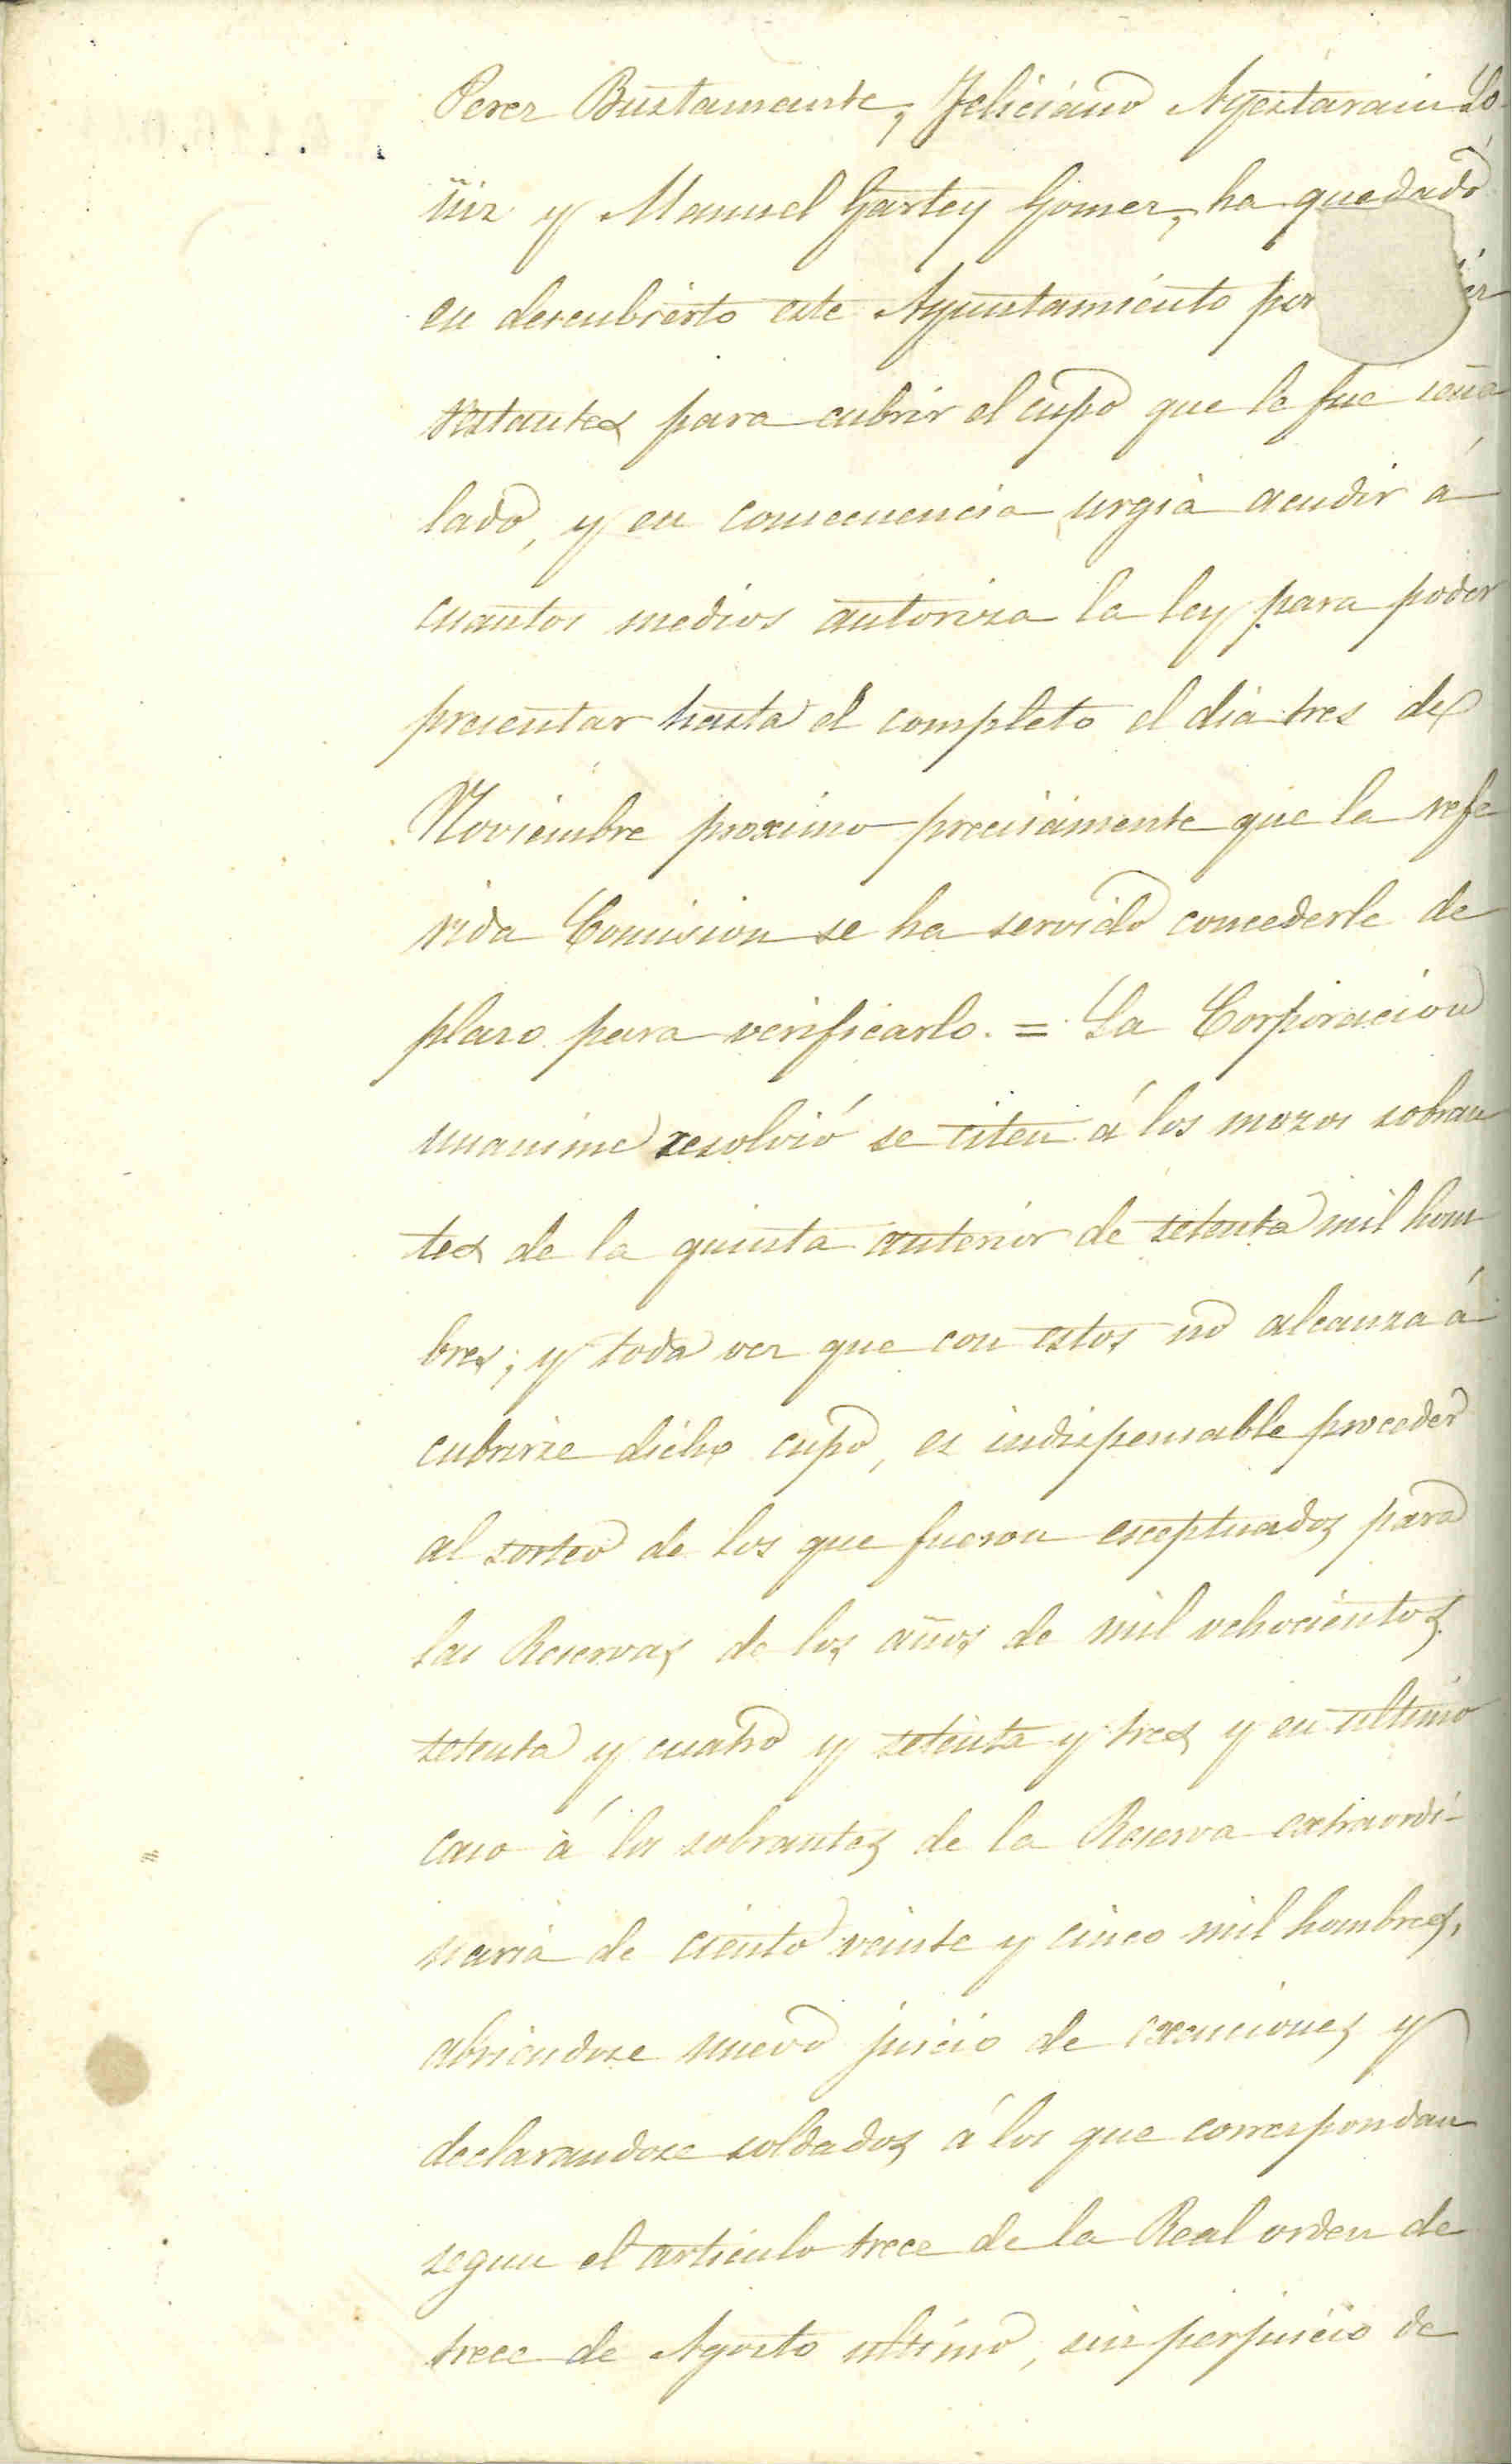 Perez Bustamante, Feliciano Ayestarain Lo
üiz y Manuel Gartey Gomez, ha quedado
en descubierto este Ayuntamiento por
restantes para cubrir el cupo que le fue seña
lado, y en consecuencia urgia acudir á
cuantos medios autoriza la ley para poder
presentar hasta el completo el dia tres de
Noviembre proximo precisamente que la refe
rida Comision se ha servido concederle de
plazo para verificarlo. = La Corporacion
unanime resolvió se citen á los mozos sobran
tes de la quinta anterior de setenta mil hom
bres; y toda vez que con estos no alcanza á
cubrirse dicho cupo, es indispensable proceder
al sorteo de los que fueron esceptuados para
las Reservas de los años de mil ochocientos
setenta y cuatro y setenta y tres y en ultimo
caso á los sobrantes de la Reserva extraordi-
naria de ciento veinte y cinco mil hombres,
abriendose nuevo juicio de exenciones y
declarandose soldados á los que correspondan
segun el articulo trece de la Real orden de
trece de Agosto ultimo, sin perjuicio de